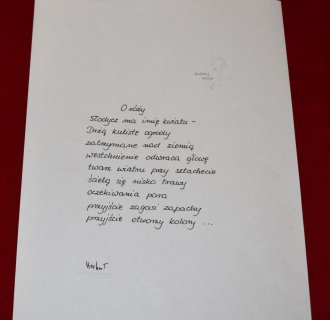 O róży
Słodycz ma imię kwiatu –
Drżą kuliste ogrody
zatrzymane nad ziemią
westchnienie odwraca głowę
twarz wiatru przy sztachecie
ścielą się nisko trawy
oczekiwania pora
przyjście zagasi zapachy
przyjście otworzy kolory ...
Herbert